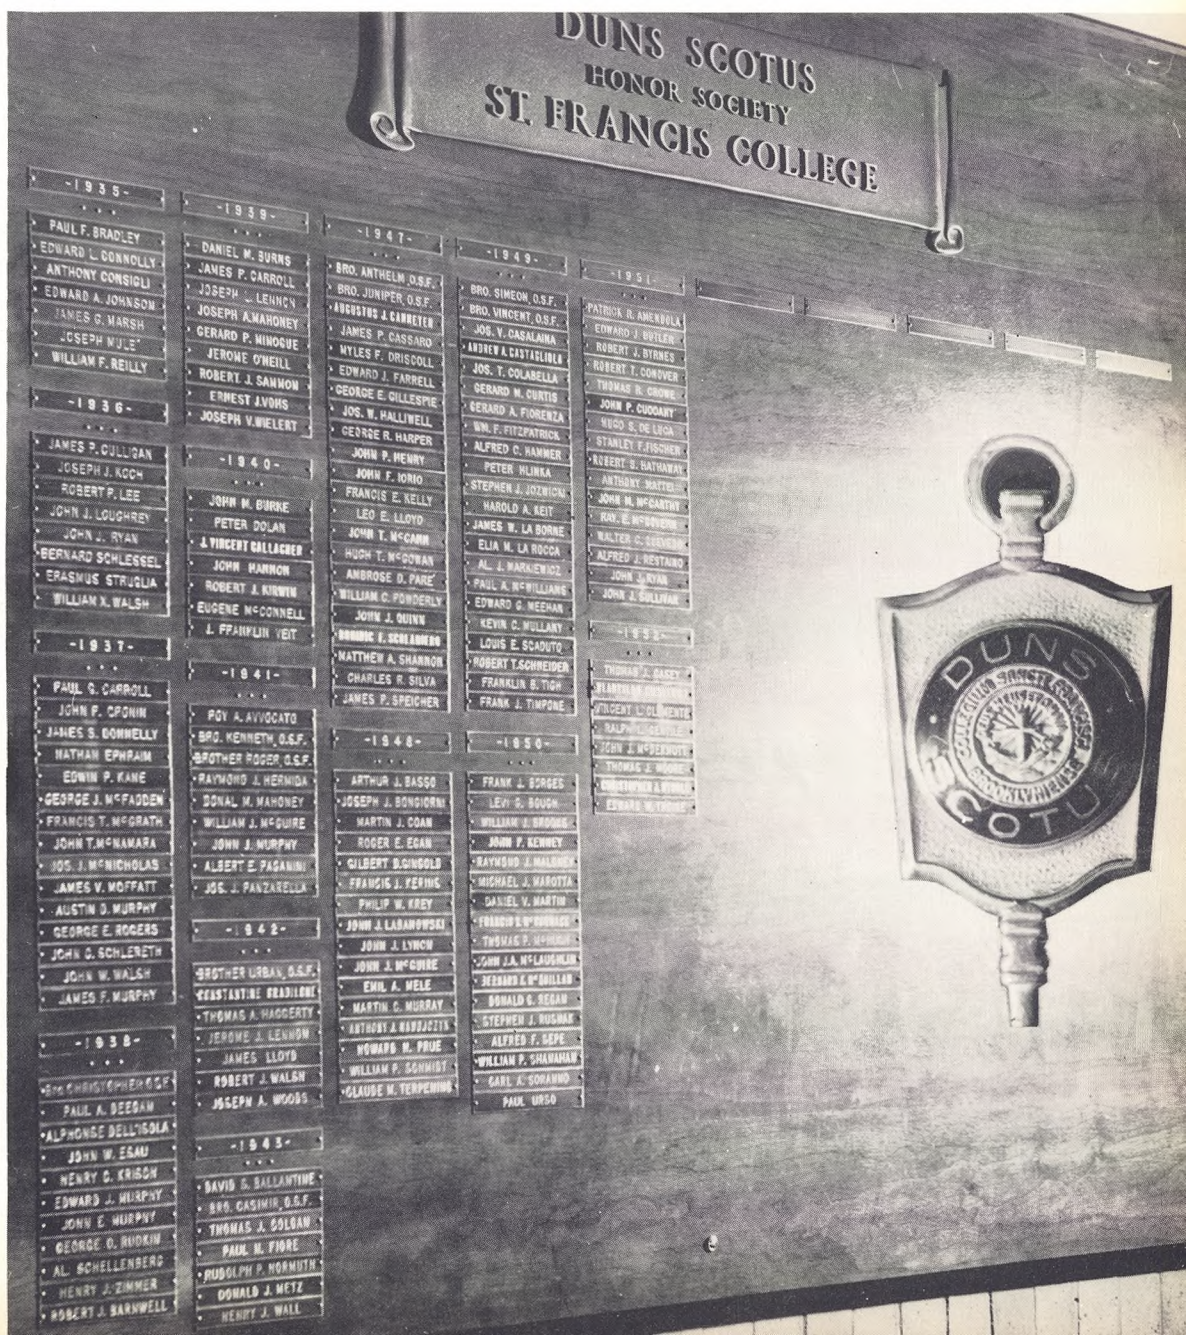 DUNS SCOTUS
HONOR SOCIETY
ST. FRANCIS COLLEGE
-1935-
PAUL F. BRADLEY
EDWARD L. CONNOLLY
ANTHONY CONSIGLI
EDWARD A. JOHNSON
JAMES G. MARSH
JOSEPH MULE'
WILLIAM F. REILLY
-1936-
JAMES P. CULLIGAN
JOSEPH J. KOCH
ROBERT P. LEE
JOHN J. LOUGHREY
JOHN J. RYAN
BERNARD SCHLESSEL
ERASMUS STRUGLIA
WILLIAM X. WALSH
-1937-
PAUL G. CARROLL
JOHN F. CRONIN
JAMES S. DONNELLY
NATHAN EPHRAIM
EDWIN P. KANE
GEORGE J. McFADDEN
FRANCIS T. McGRATH
JOHN T. McNAMARA
JOS. J. McNICHOLAS
JAMES V. MOFFATT
AUSTIN D. MURPHY
GEORGE E. ROGERS
JOHN C. SCHLERETH
JOHN W. WALSH
JAMES F. MURPHY
-1938-
BRO. CHRISTOPHER O.S.F.
PAUL A. DEEGAN
ALPHONSE DELL'ISOLA
JOHN W. ESAU
HENRY C. KRISCH
EDWARD J. MURPHY
JOHN E. MURPHY
GEORGE O. RUDKIN
AL. SCHELLENBERG
HENRY J. ZIMMER
ROBERT J. BARNWELL
-1939-
DANIEL M. BURNS
JAMES P. CARROLL
JOSEPH L. LENNON
JOSEPH A. MAHONEY
GERARD P. MINOGUE
JEROME O'NEILL
ROBERT J. SAMMON
ERNEST J. VOHS
JOSEPH V. WIELERT
-1940-
JOHN M. BURKE
PETER DOLAN
J. VINCENT GALLAGHER
JOHN HANNON
ROBERT J. KIRWIN
EUGENE McCONNELL
J. FRANKLIN VEIT
-1941-
ROY A. AVVOCATO
BRO. KENNETH, O.S.F.
BROTHER ROGER, O.S.F.
RAYMOND J. HERMIDA
DONAL M. MAHONEY
WILLIAM J. McGUIRE
JOHN J. MURPHY
ALBERT E. PAGANINI
JOS. J. PANZARELLA
-1942-
BROTHER URBAN, O.S.F.
CONSTANTINE
THOMAS A. HAGGERTY
JEROME J. LENNON
JAMES LLOYD
ROBERT J. WALSH
JOSEPH A. WOODS
-1943-
DAVID G. BALLANTINE
BRO. CASIMIR, O.S.F.
THOMAS J. COLGAN
PAUL N. FIORE
RUDOLPH P. NORMUTH
DONALD J. METZ
HENRY J. WALL
-1947-
BRO. ANTHELM, O.S.F.
BRO. JUNIPER, O.S.F.
AUGUSTUS J. CANMEYER
JAMES P. CASSARO
MYLES F. DRISCOLL
EDWARD J. FARRELL
GEORGE E. GILLESPIE
JOS. W. HALLIWELL
GEORGE R. HARPER
JOHN P. HENRY
JOHN F. IORIO
FRANCIS E. KELLY
LEO E. LLOYD
JOHN T. McCANN
HUGH T. McGOWAN
AMBROSE D. PARE
WILLIAM C. POWDERLY
JOHN J. QUINN
DOMINIC F.
MATTHEW A. SHANNON
CHARLES R. SILVA
JAMES P. SPEICHER
-1948-
ARTHUR J. BASSO
JOSEPH J. BONGIORNI
MARTIN J. COAN
ROGER E. EGAN
GILBERT D. GINGOLD
FRANCIS J. KERNIS
PHILIP W. KREY
JOHN J. LABANOWSKI
JOHN J. LYNCH
JOHN J. McGUIRE
EMIL A. MELE
MARTIN C. MURRAY
ANTHONY J.
HOWARD N. PRUE
WILLIAM P. SCHMIDT
CLAUDE M. TERPENING
-1949-
BRO. SIMEON, O.S.F.
BRO. VINCENT, O.S.F.
JOS. V. CASALAINA
ANDREW A. CASTAGLIOLA
JOS. T. COLABELLA
GERARD M. CURTIS
GERARD A. FIORENZA
WM. F. FITZPATRICK
ALFRED C. HAMMER
PETER HLINKA
STEPHEN J. JOZWICK
HAROLD A. KEIT
JAMES W. LA BORNE
ELIA M. LA ROCCA
AL. J. MARKIEWICZ
PAUL A. McWILLIAMS
EDWARD G. MEEHAN
KEVIN C. MULLANY
LOUIS E. SCADUTO
ROBERT T. SCHNEIDER
FRANKLIN B. TIGH
FRANK J. TIMPONE
-1950-
FRANK J. BORGES
LEVI G. BOUGH
WILLIAM J. BROOKS
JOHN P. KENNEY
RAYMOND J. MALONEY
MICHAEL J. MAROTTA
DANIEL V. MARTIN
FRANCIS X. McCORMACK
THOMAS P. McHUGH
JOHN J.A. McLAUGHLIN
BERNARD E. McQUILLAN
DONALD G. REGAN
STEPHEN J. RUSNAK
ALFRED F. SEPE
WILLIAM P. SHANAHAN
CARL A. SORANNO
PAUL URSO
-1951-
PATRICK R. AMENDOLA
EDWARD J. BUTLER
ROBERT J. BYRNES
ROBERT T. CONOVER
THOMAS R. CROWE
JOHN P. CUDDANY
HUGO S. DE LUCA
STANLEY F. FISCHER
ROBERT B. HATHAWAY
ANTHONY MATTEI
JOHN M. McCARTHY
RAY. E.
WALTER C. QUEVEDO
ALFRED J. RESTAINO
JOHN J. RYAN
JOHN J. SULLIVAN
-1952-
THOMAS J. CASEY
VINCENT L. CLEMENTE
RALPH L.
JOHN J. McDERMOTT
THOMAS J. MOORE
CHRISTOPHER J.
EDWARD W.
DUNS
SCOTUS
COLLEGIUM SANCTI FRANCISCI
BROOKLYNIENSE